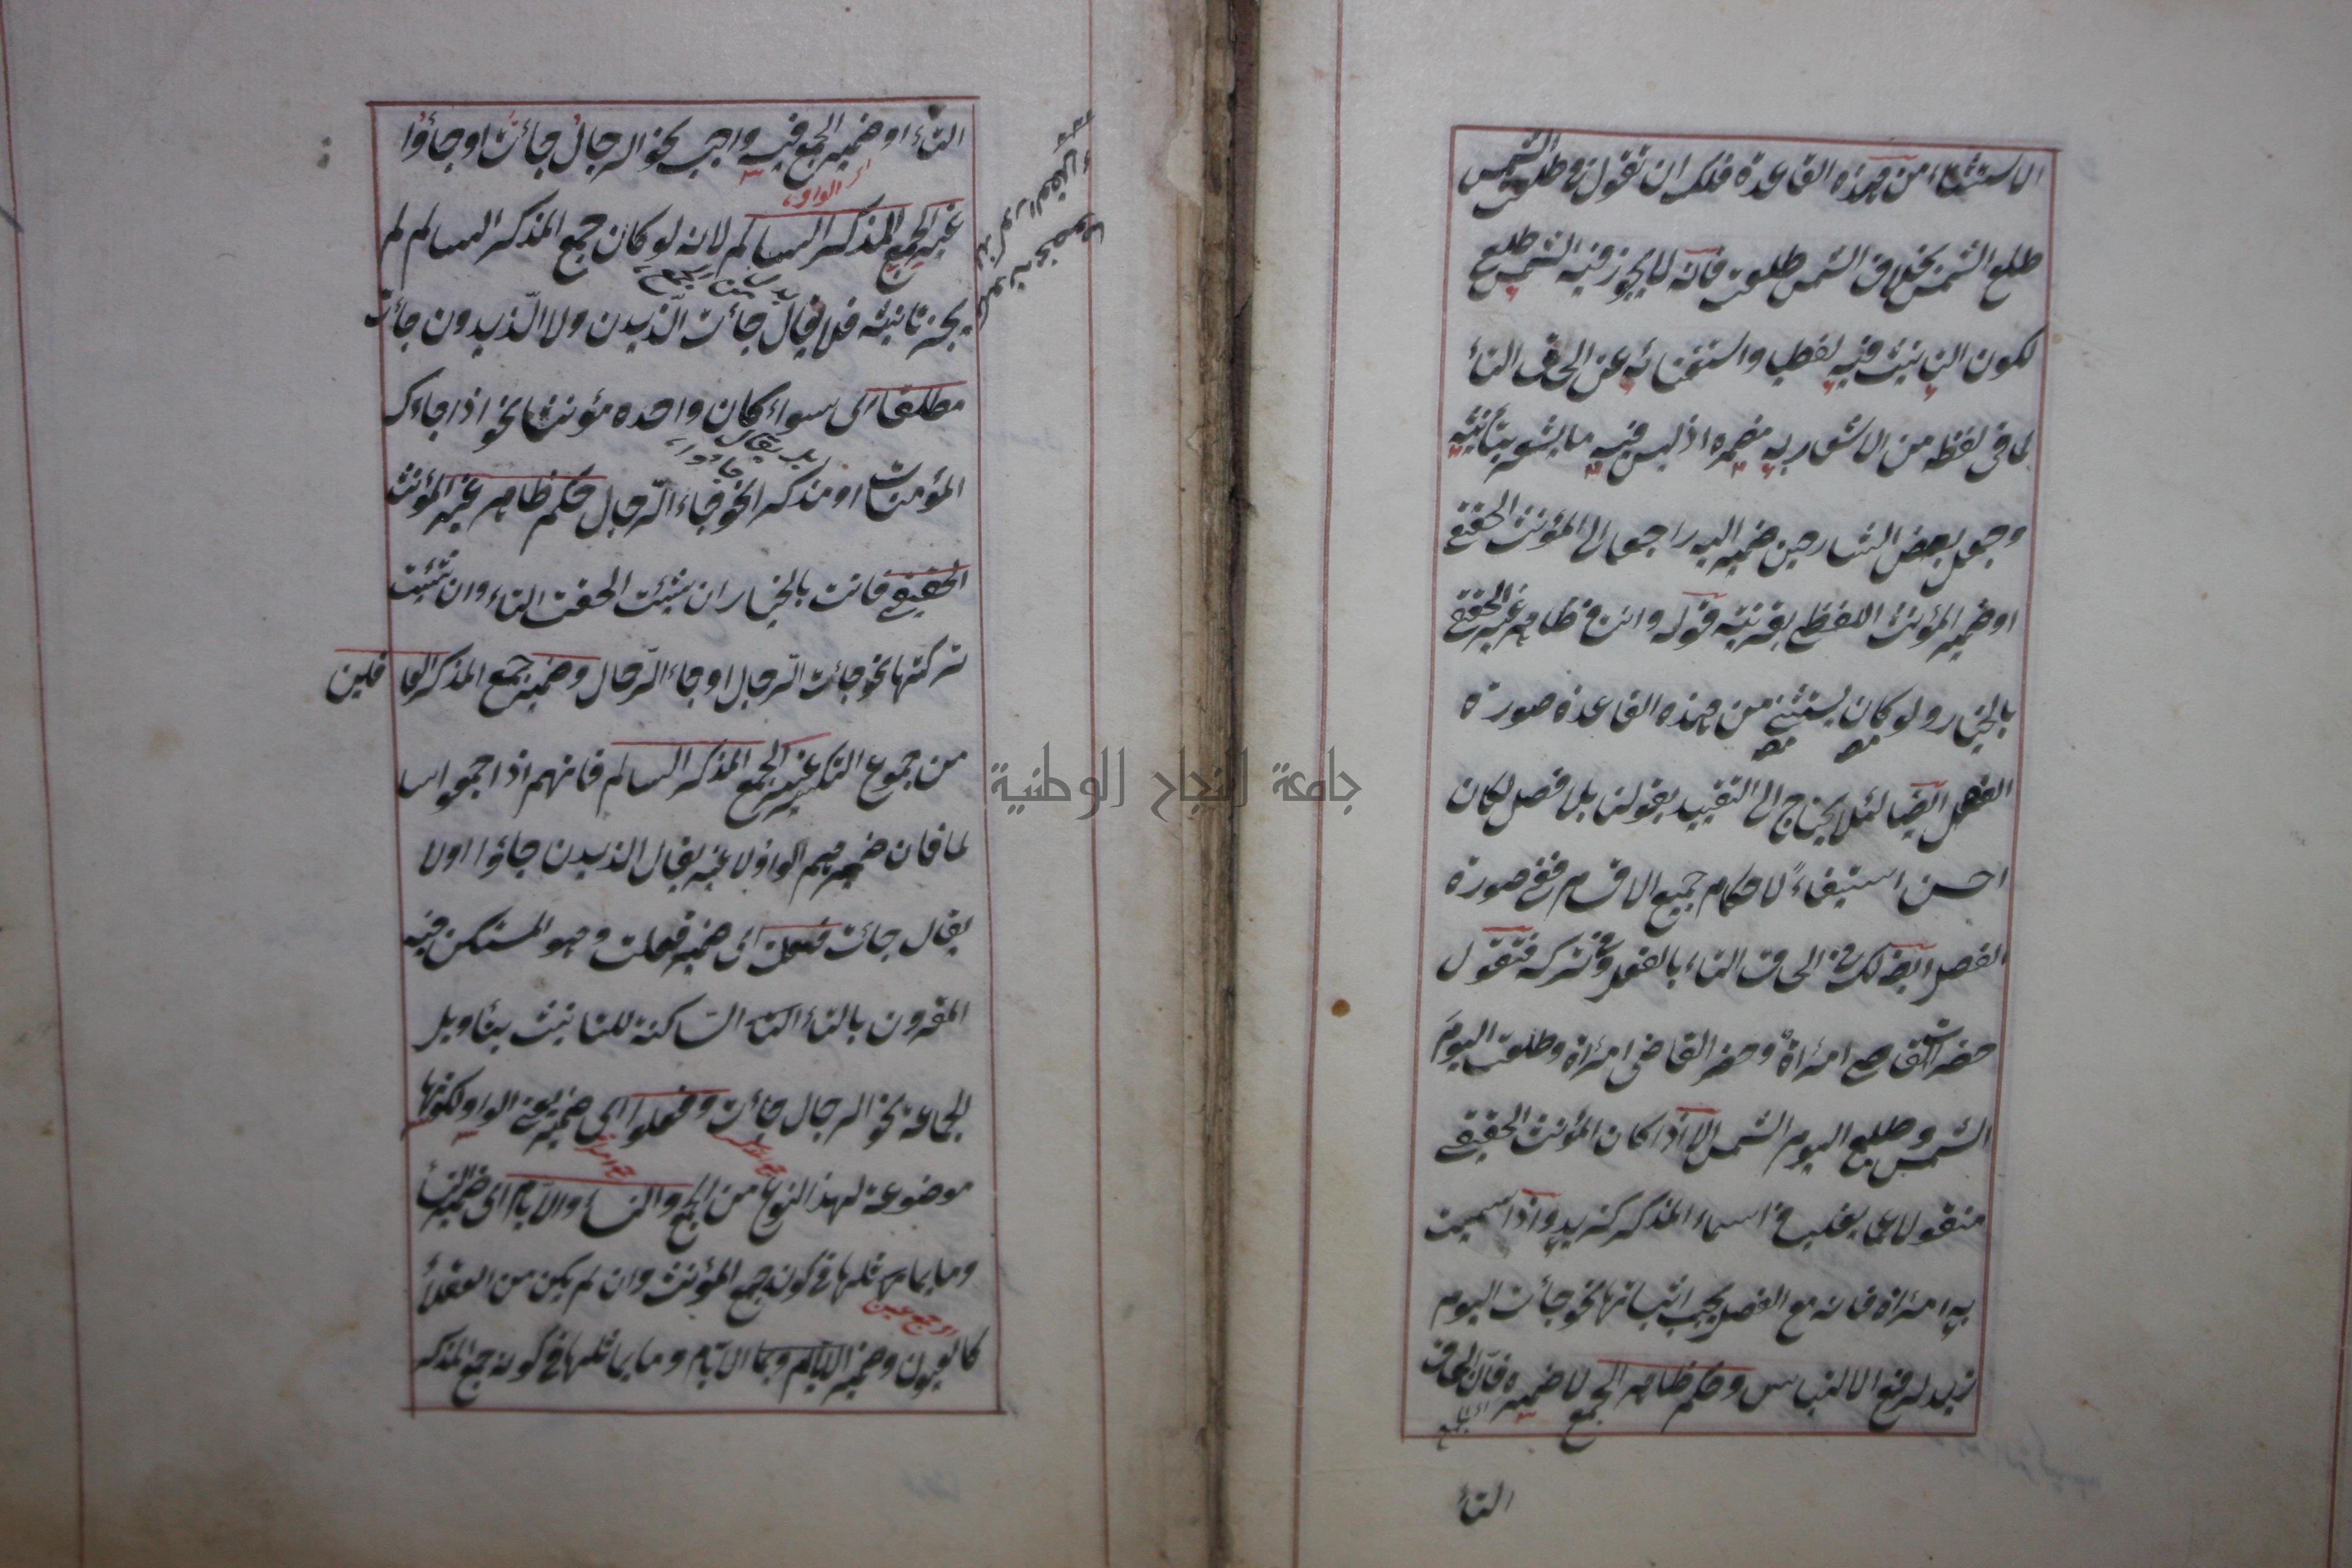 الاستثناء من هذه القاعدة فلك ان تقول في طلعت الشمس
طلع الشمس بخلاف الشمس طلعت فانه لا يجوز فيه الشمس طلع
لكون التانيث فيه لفظيا واستغنائه عن الحاق التاء
لما في لفظه من الاشعار به مضمره اذ ليس فيه ما يشعر بتأنيثه
وجعل بعض الشارحين ضمير اليه راجعا الى المؤنث الحقيقي
او ضمير المؤنث اللفظي بقرينة قوله وانت في ظاهر غير الحقيقي
بالخيار ولو كان يستثنى من هذه القاعدة صورة
الفصل ايضا لئلا يحتاج الى التقييد بقولنا بلا فصل لكان
احسن استيفاءً لاحكام جميع الاقسام ففي صورة
الفصل ايضا لك في الحاق التاء بالفعل وفي تركه فتقول
حضرت القاضي امرأةٌ وحضر القاضي امرأة وطلعت اليومَ
الشمس وطلع اليوم الشمس الا اذا كان المؤنث الحقيقي
منقولا عما يغلب في اسماء المذكر كزيد واذا سميت
به امرأة فانه مع الفصل يجب اثباتها نحو جائت اليوم
زيد لدفع الالتباس وحكم ظاهر الجمع لا ضميره فان الحاق
التاء
التاء او ضمير الجمع فيه واجب نحو الرجال جائت او جاؤا
اى الواو
غير الجمع المذكر السالم لانه لو كان جمع المذكر السالم لم
يجز تانيثه فلا يقال جائت الزيدون ولا الزيدون جائت
مطلقا اى سواء كان واحده مؤنثا نحو اذا جاءك
بل يقال جاؤا
المؤمنات او مذكرا نحو جاء الرجال حكم ظاهر غير المؤنث
الحقيقي فانت بالخيار ان شئت الحقت التاء وان شئت
تركتها نحو جائت الرجال او جاء الرجال وضمير جمع المذكر العاقلين
من جموع التكسير غير الجمع المذكر السالم فانهم اذا جمعوا سا
لما فان ضميرهم الواو لا غير يقال الزيدون جاؤا ولا
يقال جائت فعلت اى ضمير فعلت وهو المستكن فيه
المقرون بالتاء التاء الساكنة للتانيث بتأويل
الجماعة نحو الرجال جائت وفعلوا اى ضمير يعني الواو لكونها
موضوعة لهذا النوع من الجمع والنساء والايام اى ضمير النساء
وما يماثلها في كونه جمع المؤنث وان لم يكن من العقلاء
كالعيون وضمير الايام وما يماثلها في كونه جمع المذكر
جامعة النجاح الوطنية